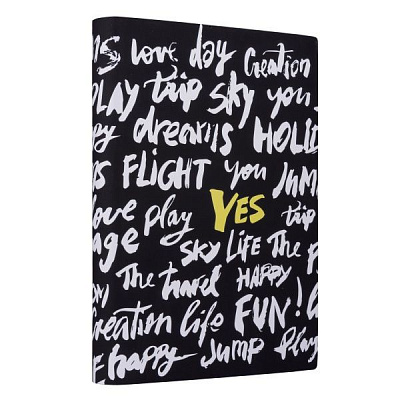 love day Creation
PLAY trip SKY you
dreams HOLID
FLIGHT you JUMP
love play YES trip
age SKY LIFE The
The travel HAPPY
Creation life FUN!
happy JUMP Play